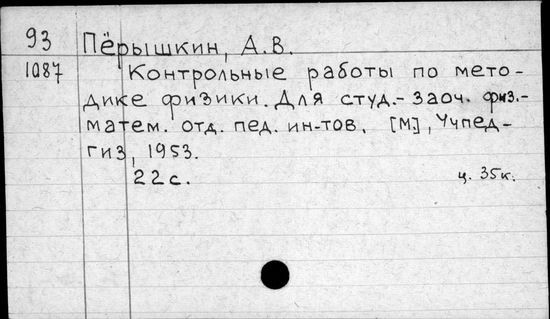 93 Пёрышкин, А.В.
1087 Контрольные работы по мето-
дике физики. Для студ.-заоч. физ.-
матем. отд. пед. ин-тов. [М], Учпед-
гиз, 1953.
22 с. ц. 35к.